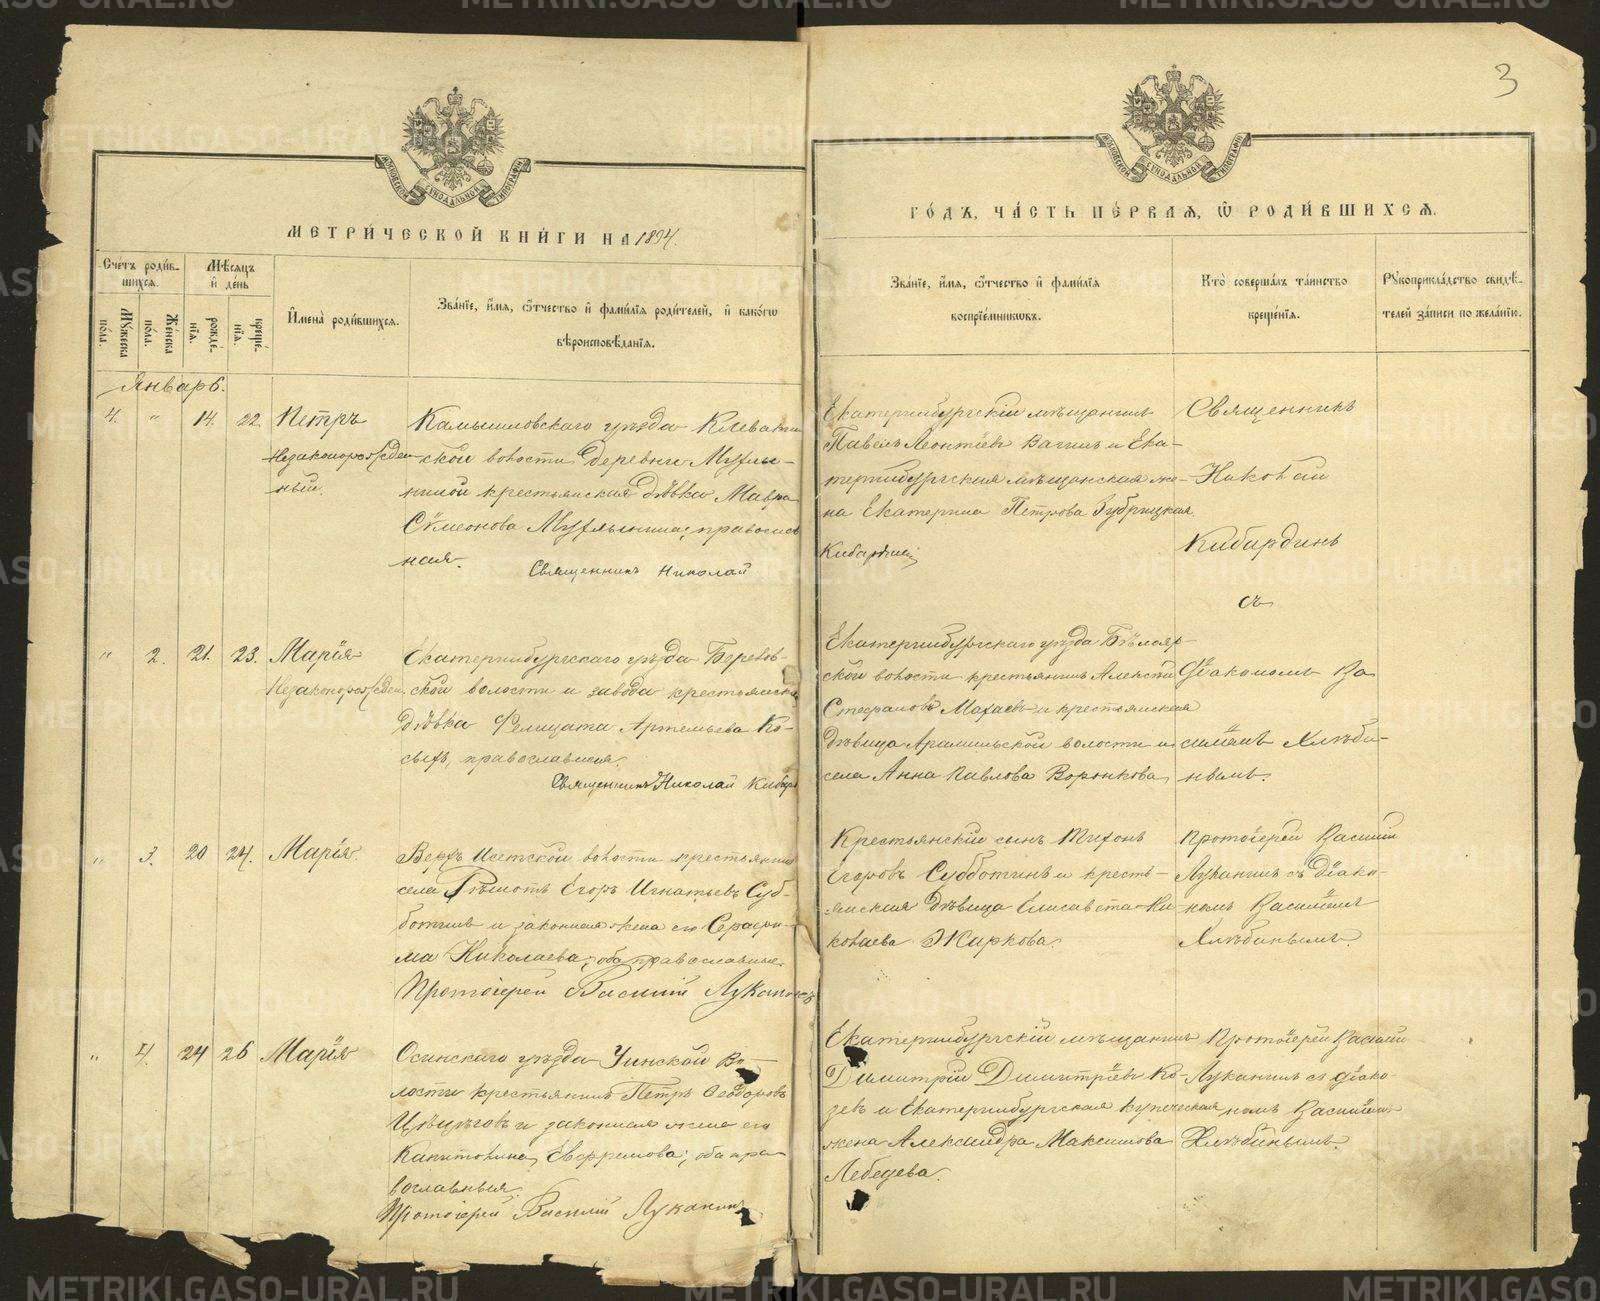 3
МОСКОВСКОЙ СѴНОДАЛЬНОЙ ТИПОГРАФІИ
МОСКОВСКОЙ СѴНОДАЛЬНОЙ ТИПОГРАФІИ
МЕТРИ́ЧЕСКОЙ КНИ́ГИ НА 1894.
ГО́ДЪ, ЧА́СТЬ ПЕ́РВАѦ, Ѡ РОДИ́ВШИХСѦ.
Сче́тъ роди́в-
шихсѧ.
Мѣ́сѧцъ
и҆ де́нь
Мꙋ́жеска по́ла.
Же́нска по́ла.
рожде́-нїѧ.
креще́-нїѧ.
И҆мена̀ роди́вшихсѧ.
Зва́нїе, и҆́мѧ, ѻ҆́тчество и҆ фами́лїѧ роди́телей, и҆ како́гѡ
вѣроисповѣ́данїѧ.
Зва́нїе, и҆́мѧ, ѻ҆́тчество и҆ фами́лїѧ
воспрїе́мникѡвъ.
Кто̀ соверша́лъ та́инство
креще́нїѧ.
Рꙋкоприкла́дство свидѣ́-
телей за́писи по жела́нїю.
Январь.
4. " 14. 22. Петръ
Незаконорожден-
ный.
Камышловскаго уѣзда Клевакин
ской волости деревни Мухлы-
ниной крестьянская дѣвка Мавра
Сѵмеонова Мухлынина, православ
ная.
Священникъ Николай
Екатеринбургскій мѣщанинъ
Павелъ Леонтіевъ Вагинъ и Ека-
теринбургская мѣщанская же-
на Екатерина Петрова Зубрицкая
Кибардинъ
Священникъ
Николай
Кибардинъ
съ
" 2. 21. 23. Марія
Незаконорожден.
Екатеринбургскаго уѣзда Березов-
ской волости и завода крестьянска
дѣвка Фелицата Артемьева Ко-
сыхъ, православная.
Священникъ Николай Кибард
Екатеринбургскаго уѣзда Бѣлояр-
ской волости крестьянинъ Алексѣй
Стефановъ Махаевъ и крестьянская
дѣвица Арамильской волости и
села Анна Павлова Воронкова,
діакономъ Ва
силіемъ Хлѣби-
нымъ.
" 3. 20 24. Марія.
Верхъ Исетской волости крестьянинъ
села Рѣшотъ Егоръ Игнатьевъ Суб-
ботинъ и законная жена его Серафи-
ма Николаева, оба православные.
Протоіерей Василій Луканинъ
Крестьянскій сынъ Тихонъ
Егоровъ Субботинъ и кресть-
янская дѣвица Елисавета Ни
колаева Жиркова.
Протоіерей Василій
Луканинъ съ діако-
номъ Василіемъ
Хлѣбинымъ.
" 4. 24 26 Марія
Осинскаго уѣзда Уинской во-
лости крестьянинъ Петръ Ѳеодоровъ
и законная жена его
Капитолина Евфремова, оба пра-
вославныя
Протоіерей Василій Луканинъ
Екатеринбургскій мѣщанинъ
Димитрій Димитріевъ Ко-
зевъ и Екатеринбургская купеческая
жена Александра Максимова
Лебедева.
Протоіерей Василій
Луканинъ съ діако-
номъ Василіемъ
Хлѣбинымъ.
METRIKI.GASO-URAL.RU